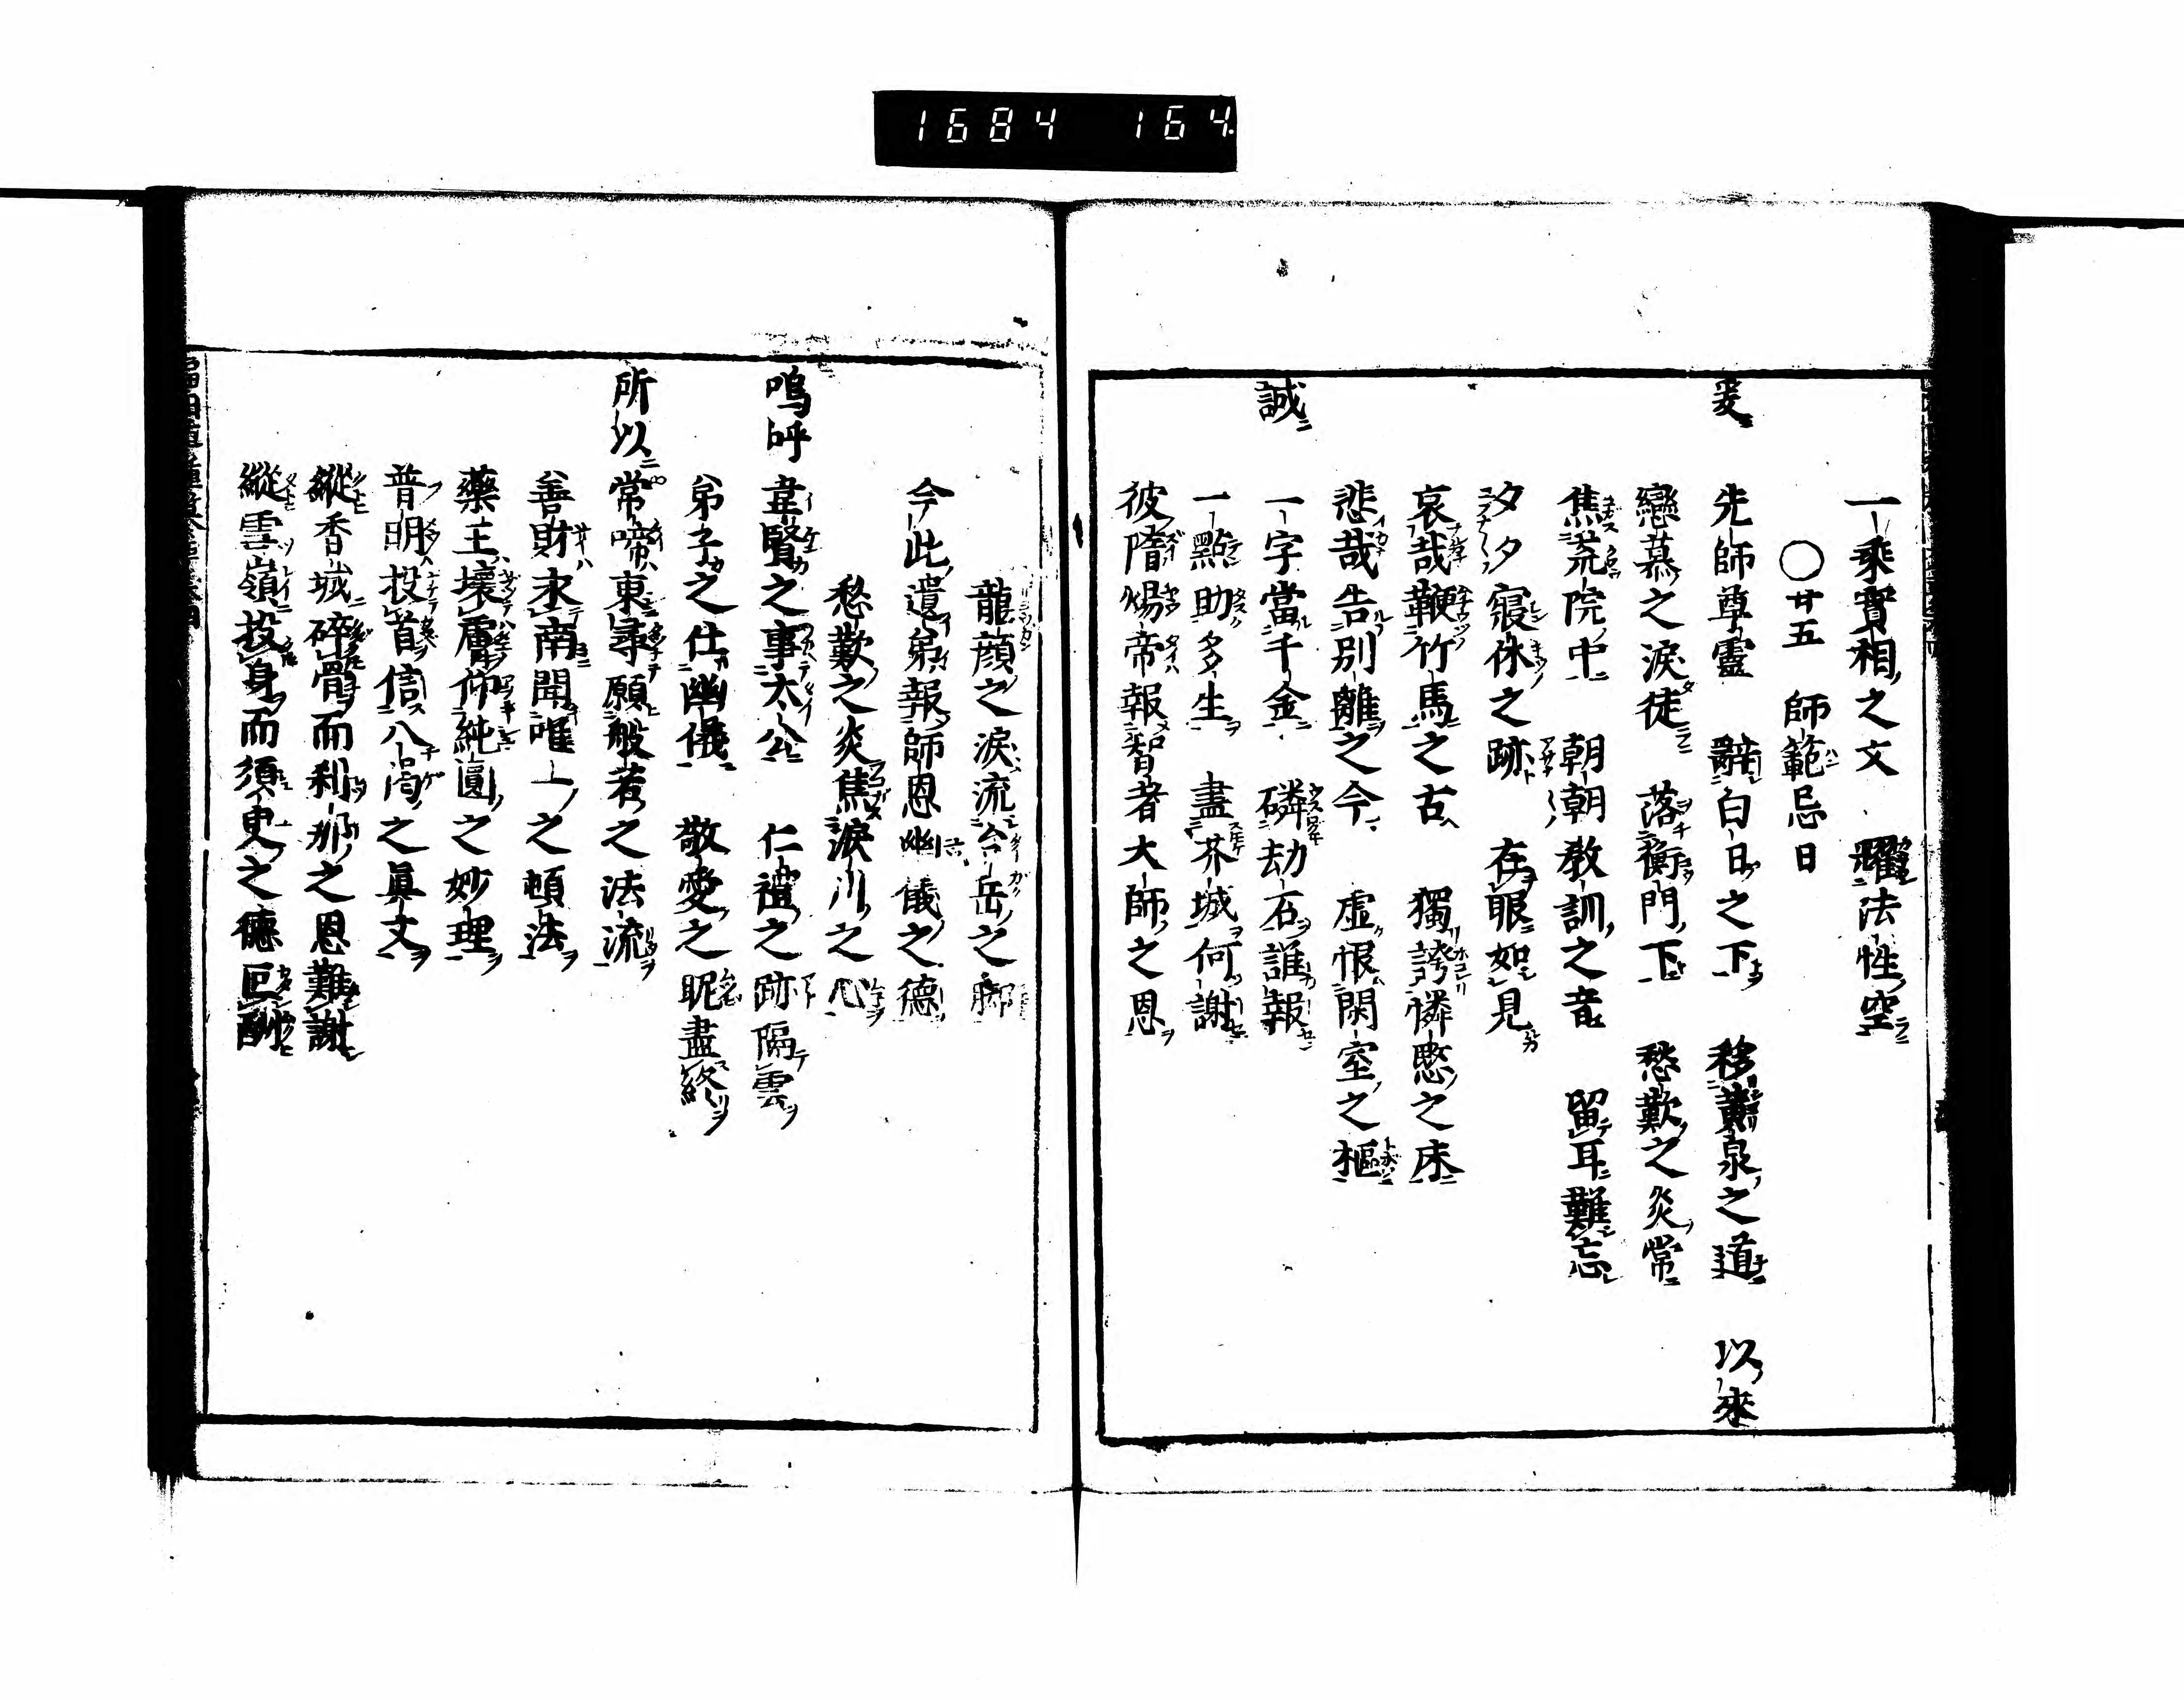 1684 164.
一乘實相之文 耀法性空
〇廿五 師範忌日
爰 先師尊靈 辭白日之下 移黄泉之道 以來
戀慕之淚徒 落衡門下 愁歎之炎常
焦荒院中 朝朝教訓之音 留耳難忘
夕夕寢休之跡 在眼如見
哀哉鞭竹馬之古 獨誇憐愍之床
悲哉告別離之今 虛恨閑室之樞
誠 一字當千金 磷劫石誰報
一點助多生 盡芥城何謝
彼隋煬帝報智者大師之恩
龍顔之淚流台岳之
今此遺弟報師恩幽儀之德
愁歎之炎焦淚川之心
嗚呼 韋賢之事太公 仁禮之跡隔雲
弟子之仕幽儀 敬愛之昵盡終
所以 常啼東尋願般若之法流
善財求南聞唯一之頓法
藥王壞膚仰純圓之妙理
普明投首信八之眞文
縱香城碎骨而刹那之恩難謝
縱雪嶺投身而須臾之德叵酬